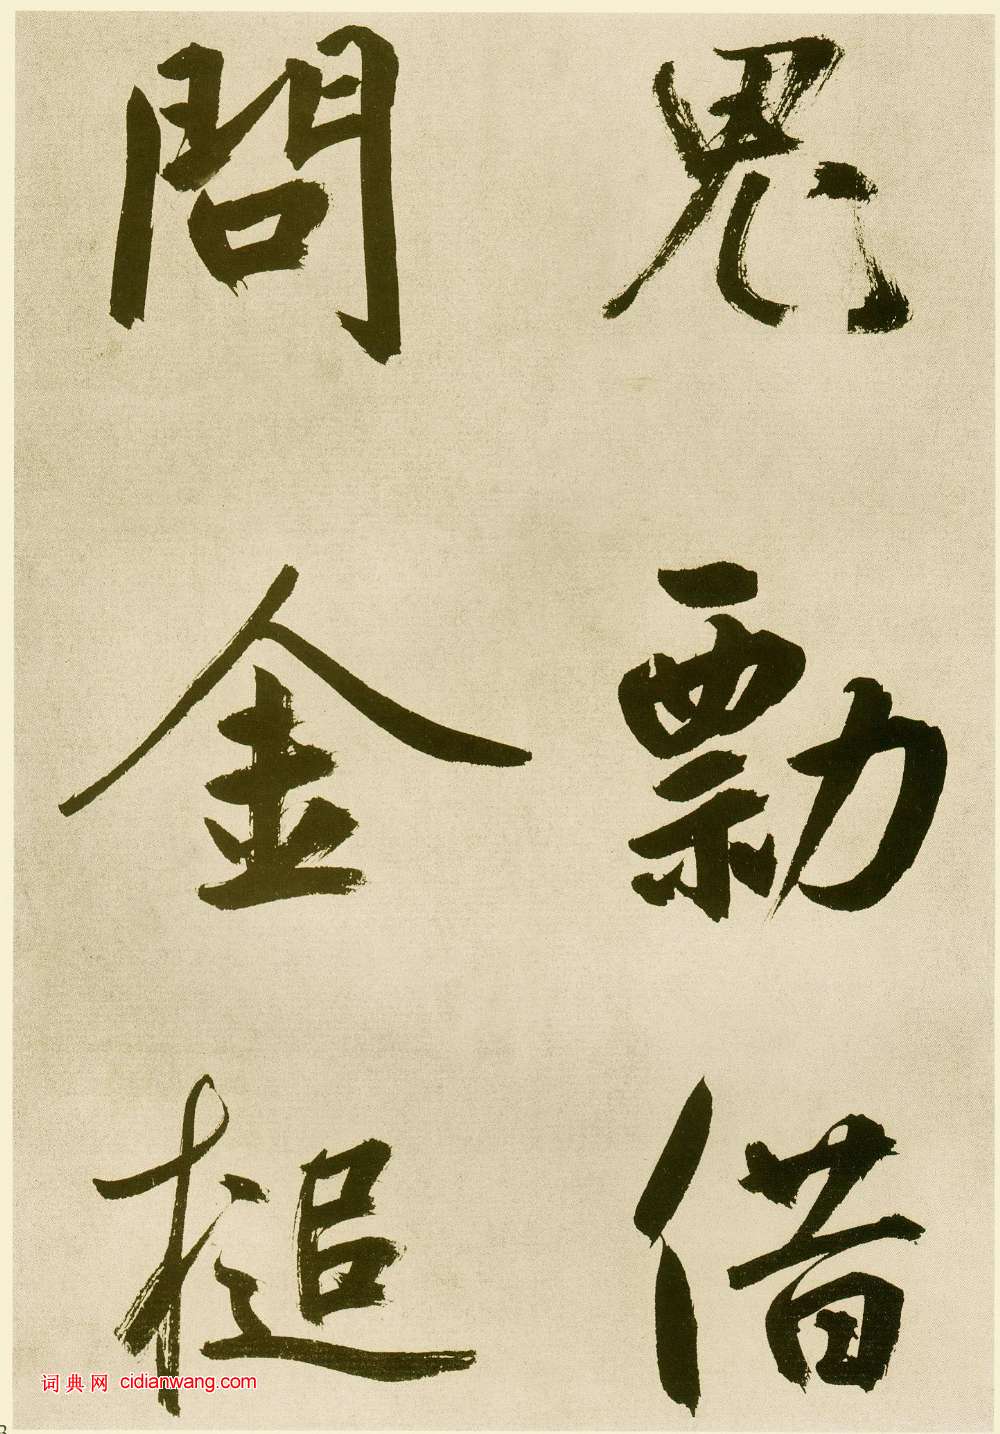 鬼勡借
問金槌
词典网 cidianwang.com